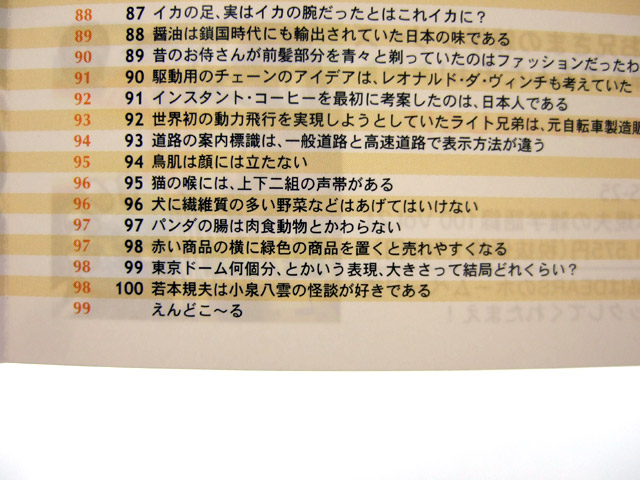 88 87 イカの足、実はイカの腕だったとはこれイカに？
89 88 醤油は鎖国時代にも輸出されていた日本の味である
90 89 昔のお侍さんが前髪部分を青々と剃っていたのはファッションだったわ
91 90 駆動用のチェーンのアイデアは、レオナルド・ダ・ヴィンチも考えていた
92 91 インスタント・コーヒーを最初に考案したのは、日本人である
93 92 世界初の動力飛行を実現しようとしていたライト兄弟は、元自転車製造販
94 93 道路の案内標識は、一般道路と高速道路で表示方法が違う
95 94 鳥肌は顔には立たない
96 95 猫の喉には、上下二組の声帯がある
96 96 犬に繊維質の多い野菜などはあげてはいけない
97 97 パンダの腸は肉食動物とかわらない
97 98 赤い商品の横に緑色の商品を置くと売れやすくなる
98 99 東京ドーム何個分、とかいう表現、大きさって結局どれくらい？
98 100 若本規夫は小泉八雲の怪談が好きである
99 えんどこ〜る